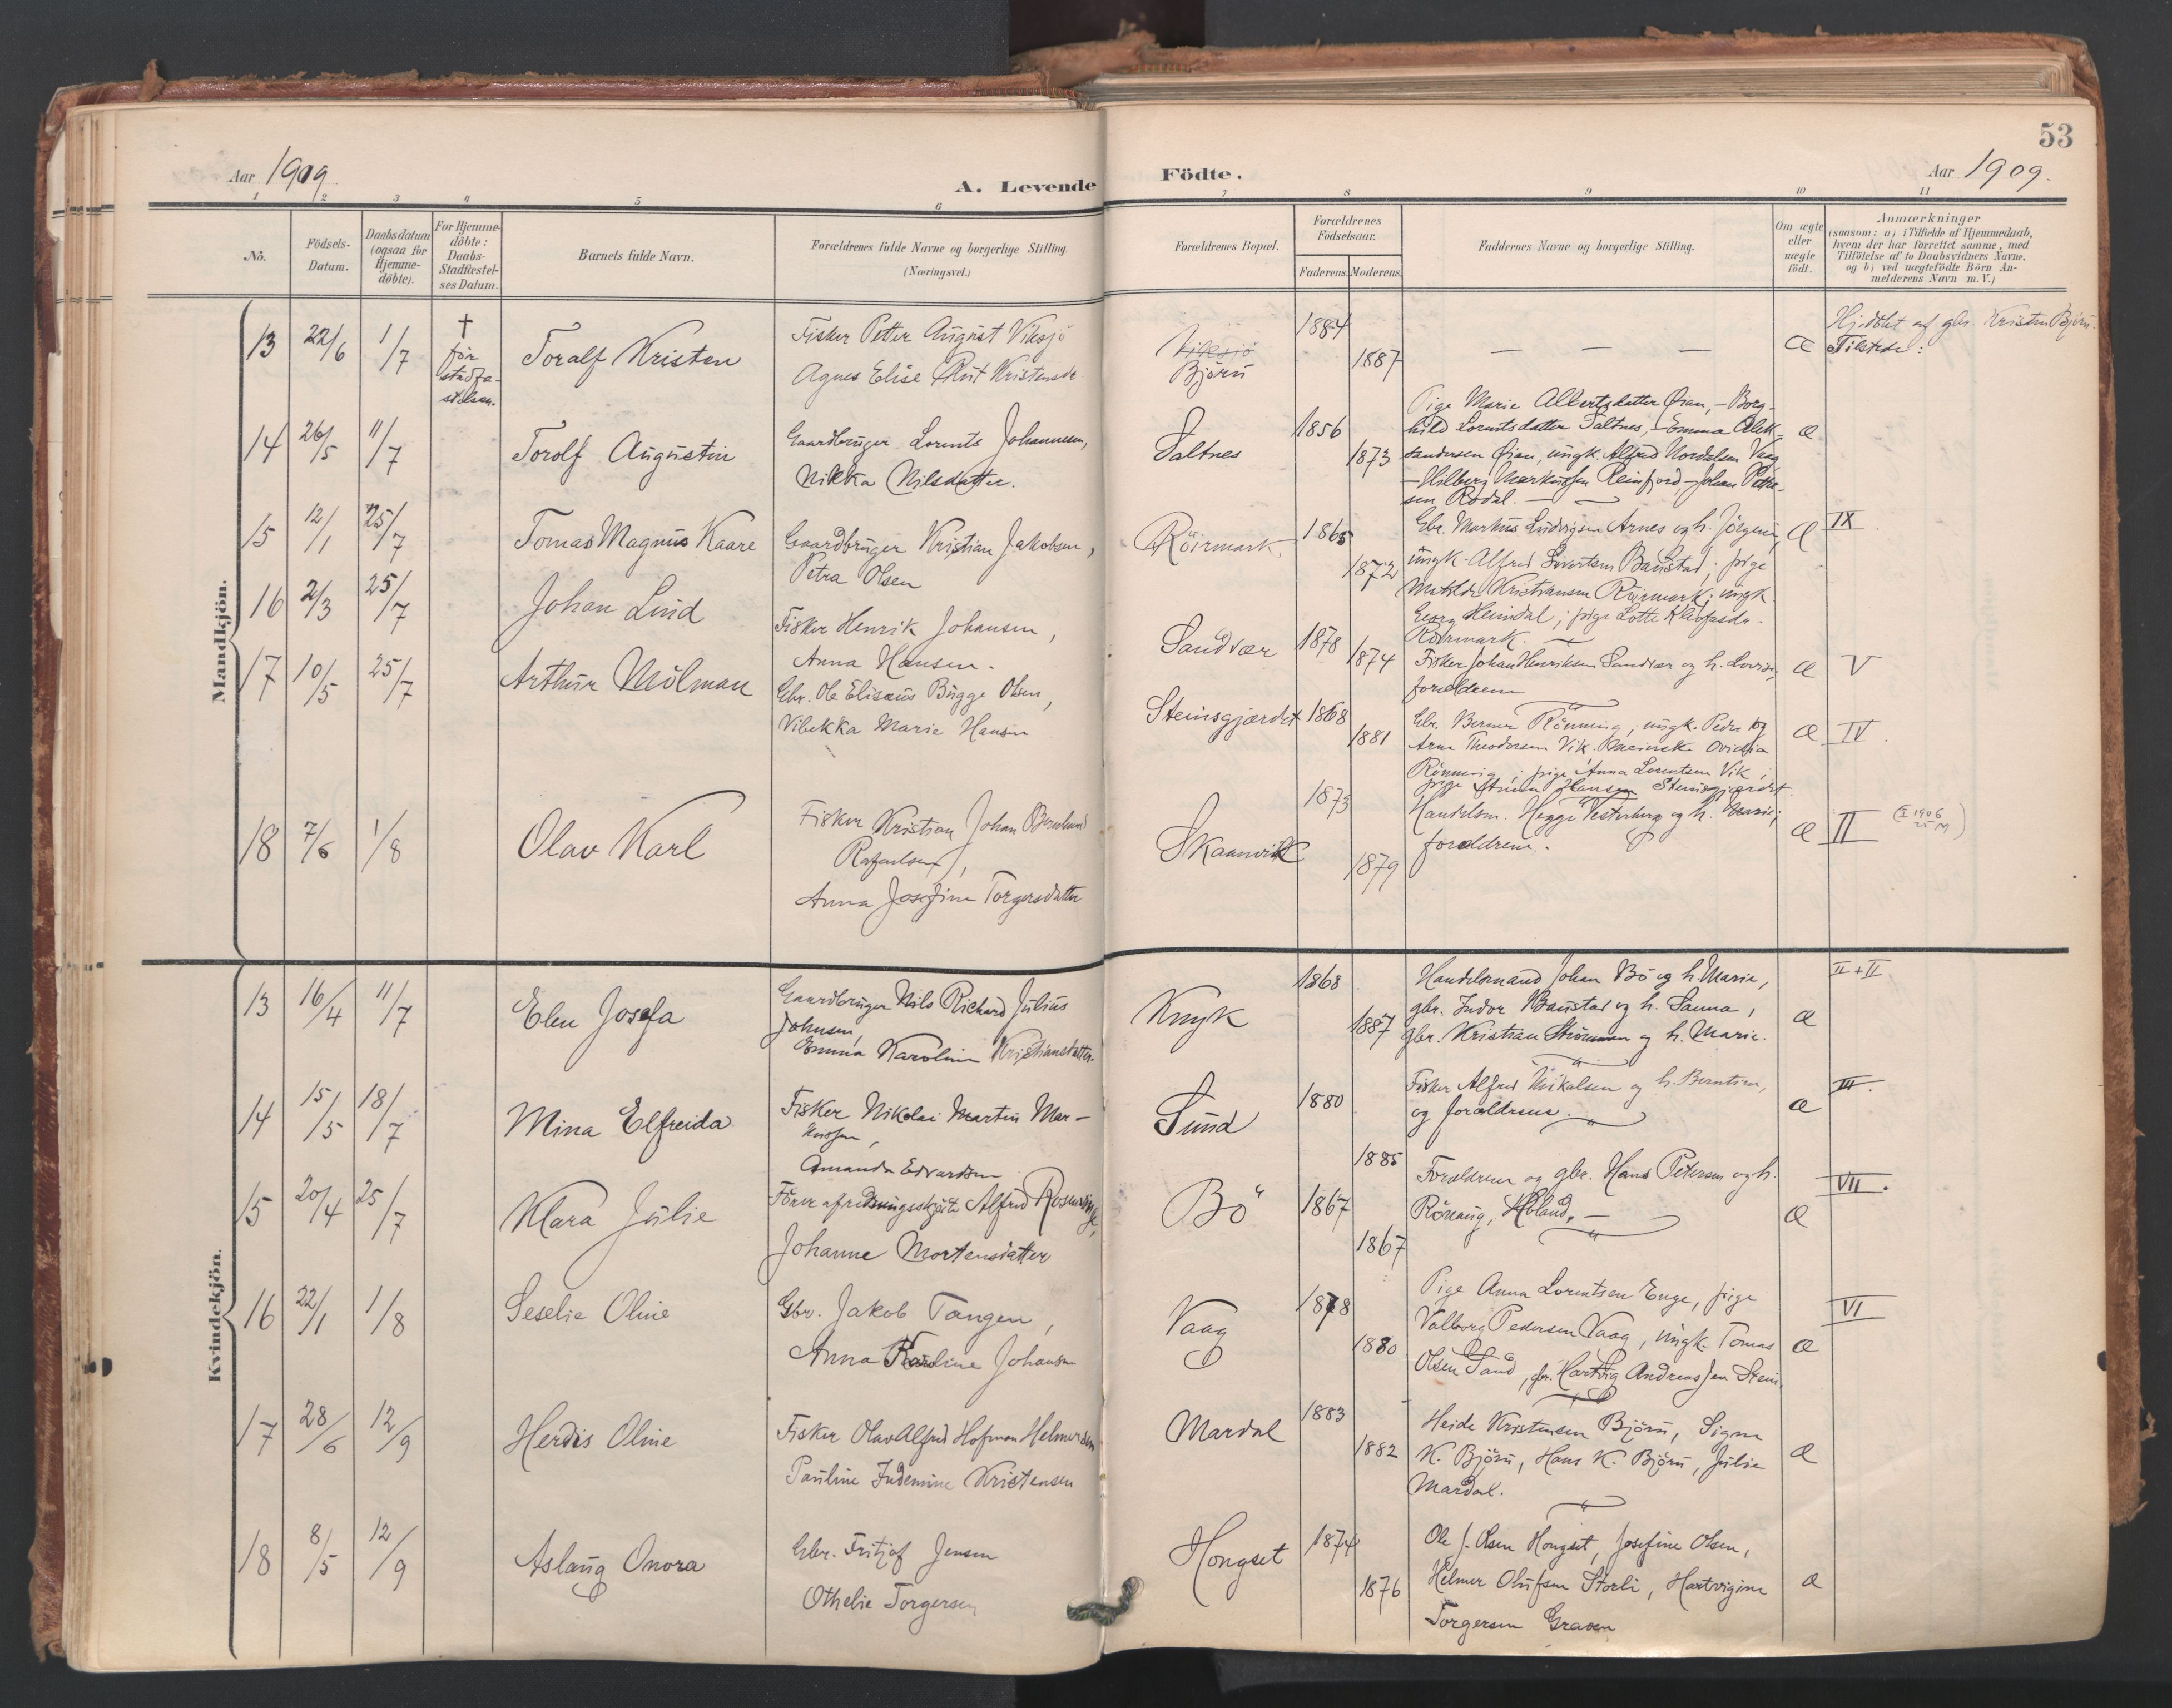 53
Aar 1909. A. Levende Födte. Aar 1909.
1 2 3 4 5 6 7 8 9 10 11
Nö.
Födsels-
Datum.
Daabsdatum
(ogsaa for
Hjemme-
döbte).
For Hjemme-
döbte:
Daabs-
Stadfæstel-
ses Datum.
Barnets fulde Navn.
Forældrenes fulde Navne og borgerlige Stilling.
(Næringsvei.)
Forældrenes Bopæl.
Forældrenes
Födselsaar.
Faderens. Moderens.
Faddernes Navne og borgerlige Stilling.
Om ægte
eller
uægte
födt.
Anmærkninger
(saasom: a) i Tilfælde af Hjemmedaab,
hvem der har forrettet samme, med
Tilföielse af to Daabsvidners Navne.
og b) ved uægtefödte Börn An-
melderens Navn m. V.)
Mandkjön.
13 22/6 1/7
†
för
stadfæ-
stelsen.
Toralf Kristen
Fisker Petter August Viksjö
Agnes Elise Rut Kristensdr.
Viksjö
Björn
1884
1887
— — —
æ
Hjdöbt af gbr. Kristen Björn.
Tilstede:
14 26/5 11/7
Torolf Augustin
Gaardbruger Lorents Johannesen,
Nikka Nilsdatter.
Saltnes
1856
1873
Pige Marie Albertsdatter Öian, – Borg-
hild Lorentsdatter Saltnes, – Emma Alek-
sandersen Öian, ungk. Alfred Nordalsen Vaag
– Hilberg Markussen Reinfjord – Johan Peter-
sen Rödal. —
æ
15 12/1 25/7
Tomas Magnus Kaare
Gaardbruger Kristian Jakobsen,
Petra Olsen
Röirmark
1865
1872
Gbr. Markus Ludvigsen Arnes og h. Jörgine,
ungk. Alfred Sivertsen Baustad; pige
Matilde Kristiansen Röirmark; ungk.
Georg Heimdal; pige Lotte Kleofasdr.
Röirmark.
æ
IX
16 2/3 25/7
Johan Lind
Fisker Henrik Johansen,
Anna Hansen.
Sandvær
1878
1874
Fisker Johan Henriksen Sandvær og h. Lovise,
forældrene
æ
V
17 10/5 25/7
Arthur Mölman
Gbr. Ole Elisæus Bugge Olsen,
Vibekka Marie Hansen
Steinsgjærdet
1868
1881
Gbr. Berner Rönning, ungk. Peder og
Arne Theodorsen Vik. Ovidia
Rönning; pige Anna Lorentsen Vik;
pige Hansen Steinsgjærdet
æ
IV.
18 7/6 1/8
Olav Karl
Fisker Kristian Johan Bernhard
Rafaelsen,
Anna Josefine Torgersdatter
Skaanvik
1873
1879
Handelsm. Hegge Vesterberg og h. Marie;
forældrene.
æ
II (I 1906 25 M)
Kvindekjön.
13 16/4 11/7
Elen Josefa
Gaardbruger Nils Richard Julius
Johnsen,
Emma Karoline Kristiansdatter.
Knyk
1868
1887
Handelsmand Johan Bö og h. Marie,
gbr. Indor Baustad og h. Sanna,
gbr. Kristian Strömmen og h. Marie.
æ
II + II
14 15/5 18/7
Mina Elfreida
Fisker Nikolai Martin Mar-
kussen,
Amanda Edvardsen
Sund
1880
1885
Fisker Alfred Mikalsen og h. Berntine,
og forældrene.
æ
III.
15 20/4 25/7
Klara Julie
Förer af redningsskjöite Alfred Rosenvinge,
Johanne Mortensdatter
Bö
1867
1867
Forældrene og gbr. Hans Petersen og h.
Röraug, Höland. —
æ
VII.
16 22/1 1/8
Seselie Oline
Gbr. Jakob Tangen,
Anna Karoline Johansen
Vaag
1878
1880
Pige Anna Lorentsen Enge, pige
Valborg Pedersen Vaag, ungk. Tomas
Olsen Sand, gbr. Hartvig Andreassen Stein.
æ
VI
17 28/6 12/9
Herdis Oline
Fisker Olav Alfred Hofman Helmersen
Pauline Indemine Kristensen
Mardal
1883
1882
Heide Kristensen Björn, Signe
K. Björn, Hans K. Björn, Julie
Mardal.
æ
18 8/5 12/9
Aslaug Onora
Gbr. Fritjof Jensen
Othelie Torgersen
Hongset
1874
1876
Ole J. Olsen Hongset, Josefine Olsen,
Helmer Olufsen Storli, Hartvigine
Torgersen Graven
æ